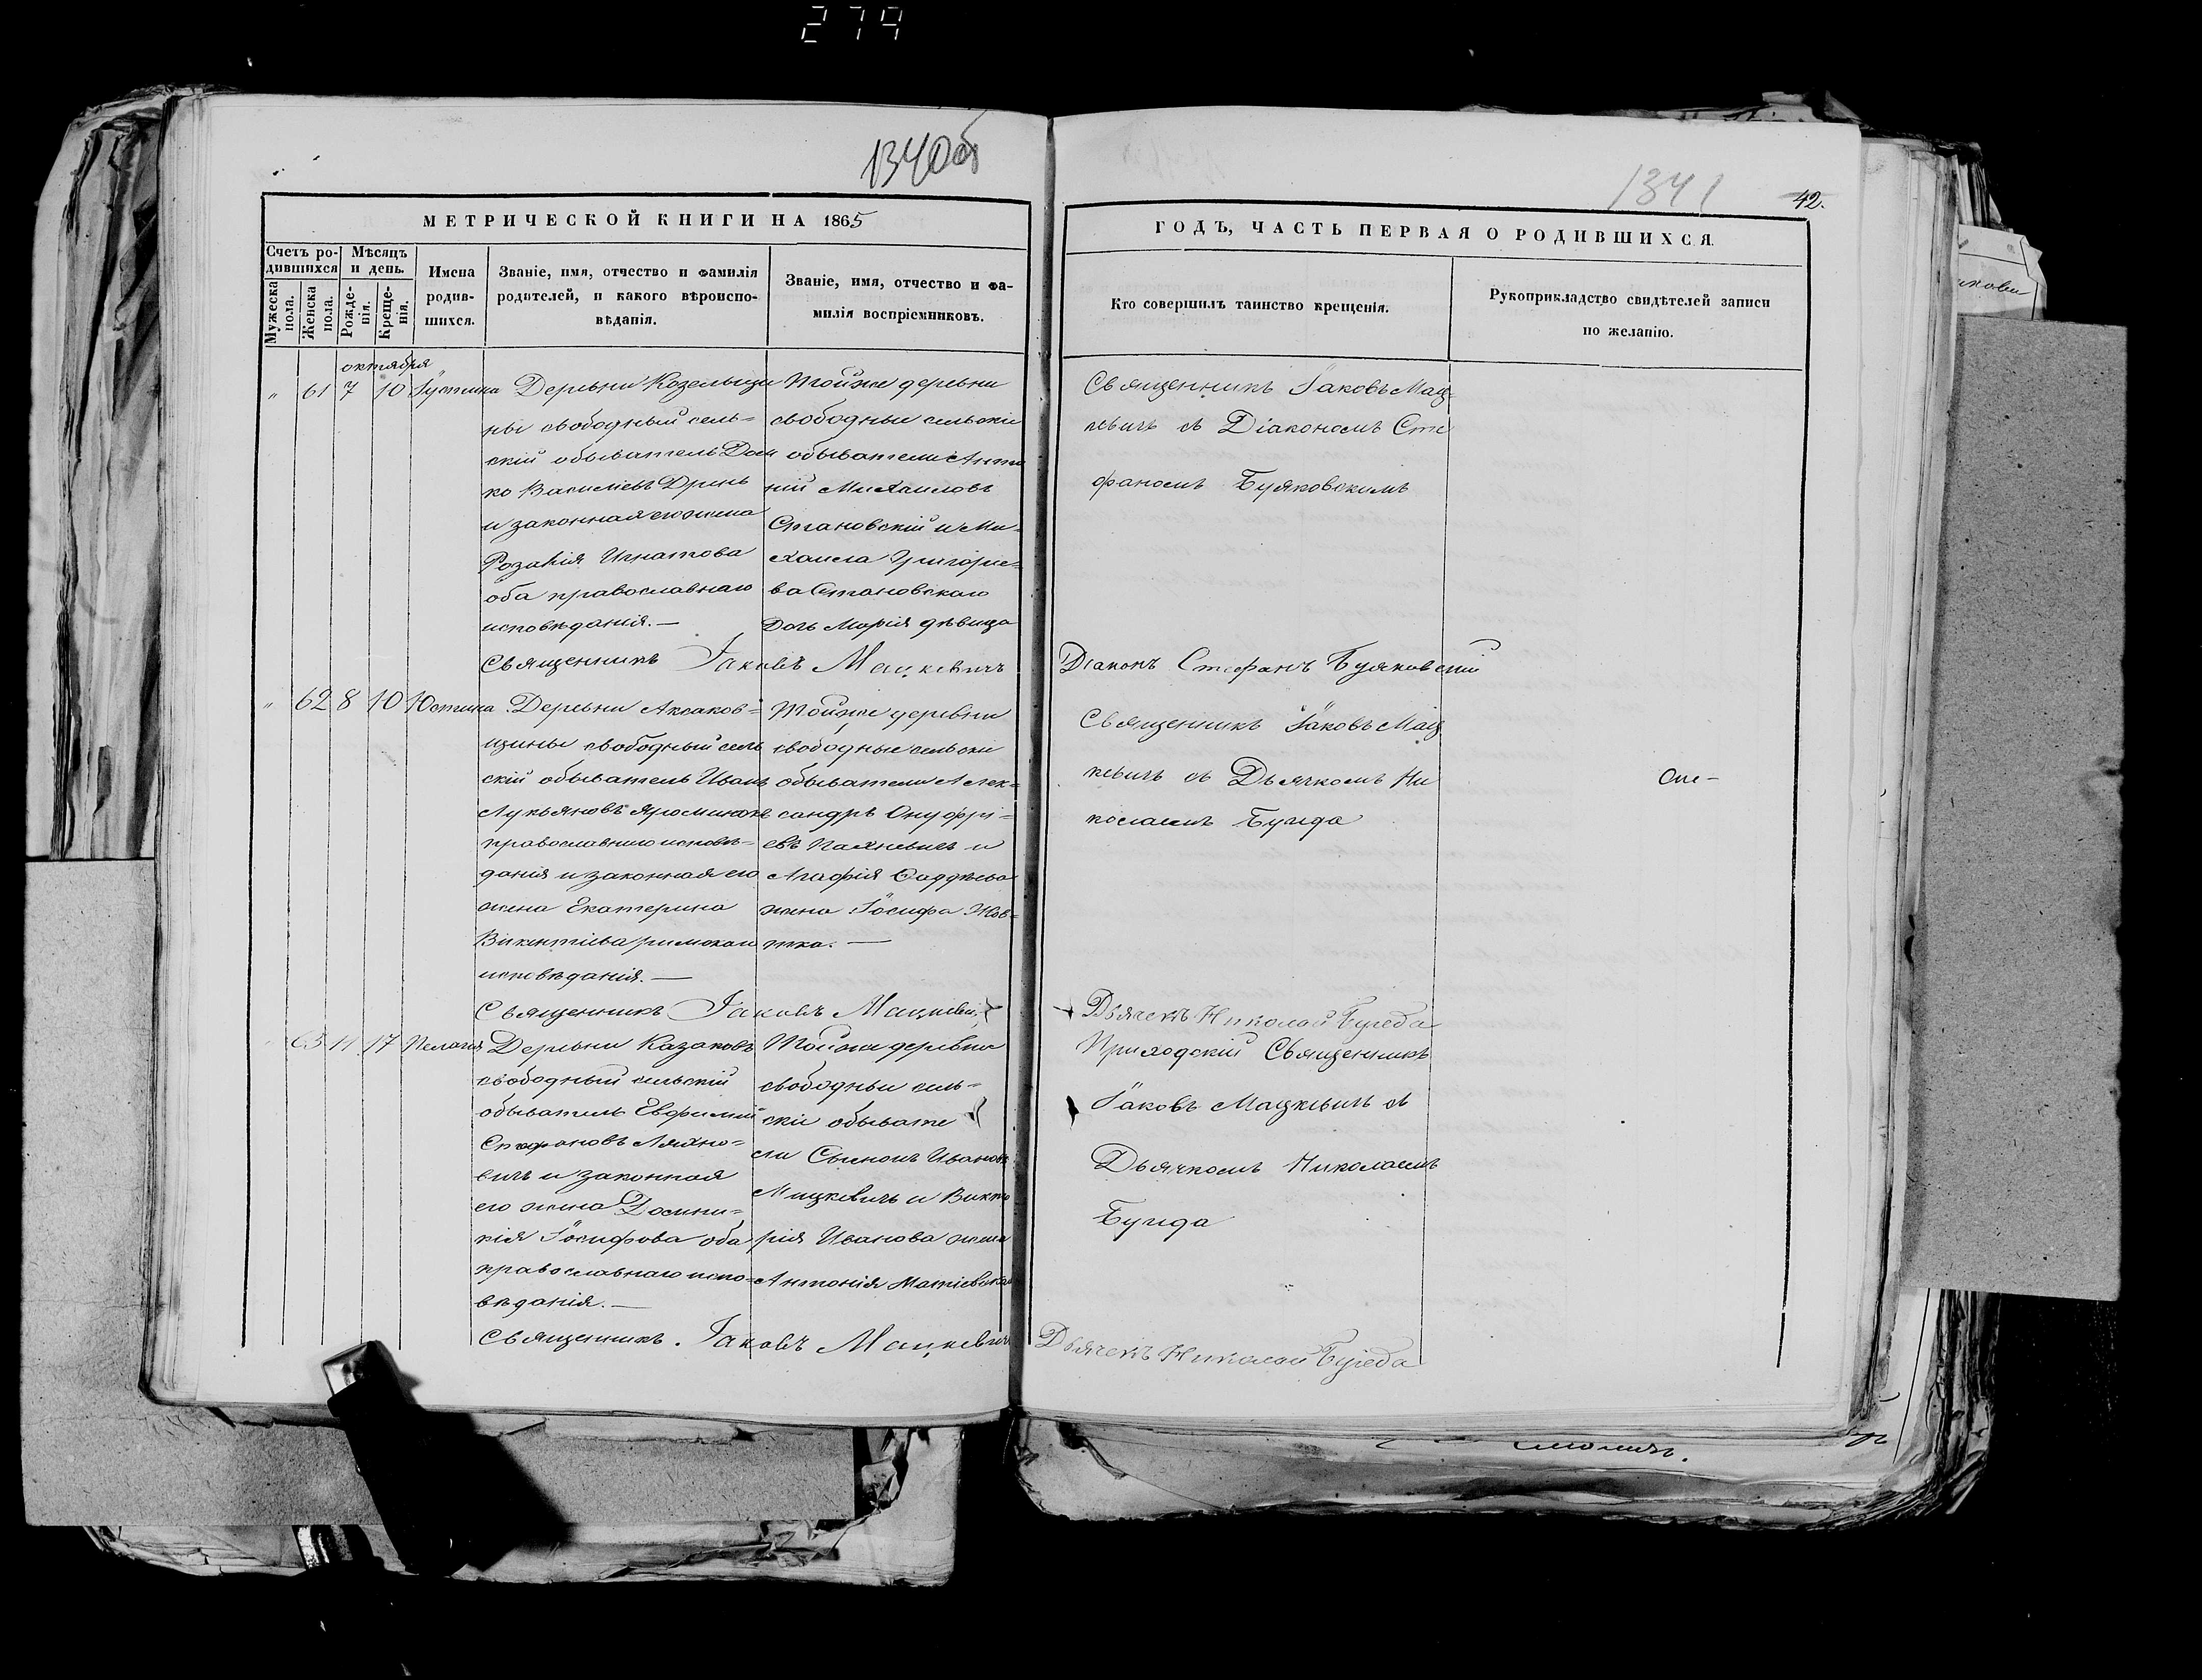 279
1340об
1341
42.
МЕТРИЧЕСКОЙ КНИГИ НА 1865
ГОДЪ, ЧАСТЬ ПЕРВАЯ О РОДИВШИХСЯ.
Счетъ ро-
дившихся
Мужеска
пола.
Женска
пола.
Мѣсяцъ
и день.
Рожде-
нія.
Креще-
нія.
Имена
родив-
шихся.
Званіе, имя, отчество и фамилія
родителей, и какого вѣроиспо-
вѣданія.
Званіе, имя, отчество и фа-
милія воспріемниковъ.
Кто совершилъ таинство крещенія.
Рукоприкладство свидѣтелей записи
по желанію.
октября
" 61 7 10 Іустина
Деревни Козельщи
ны свободный сель=
скій обыватель Дом
ко Василіевъ Дринь
и законная его жена
Розалія Игнатова
оба православнаго
исповѣданія.—
Тойже деревни
свободные сельскіе
обыватели Анто
ній Михаиловъ
Становскій и Ми-
хаила Григорие-
ва Становскаго
дочь Марія дѣвица
Священникъ Іаковъ Мац
кевичъ съ Діакономъ Сте
фаномъ Буяковскимъ
Священникъ Іаковъ Мацкевичъ
Діаконъ Стефанъ Буяковскій
" 62 8 10 Юстина
Деревни Аксаков=
щины свободный сель
скій обыватель Иванъ
Лукьяновъ
православнаго исповѣ=
данія и законная его
жена Екатерина
Викентіева римскаго
исповѣданія.—
Тойже деревни
свободные сельскіе
обыватели Алек=
сандръ Онуфрі=
евъ Пахневичъ и
Агафія Фаддѣева
жена Іосифа Жов=
тка.—
Священникъ Іаковъ Мац
кевичъ съ Дьячкомъ Ни
колаемъ Бугеда
Священникъ Іаковъ Мацкевич
Дьячекъ Николай Бугеда
63 11 17 Пелагія
Деревни Казаковъ
свободный сельскій
обыватель Евфимій
Стефановъ Ляхно=
вичъ и законная
его жена Домни=
кія Іосифова оба
православнаго испо=
вѣданія.—
Тойже деревни
свободные сель=
скіе обывате
ли Семіонъ Ивановъ
Мицкевичъ и Викто
рія Иванова жена
Антонія
Приходскій Священникъ
Іаковъ Мацкевичъ съ
Дьячкомъ Николаемъ
Бугеда
Священникъ. Іаковъ Мацкевичъ
Дьячекъ Николай Бугеда